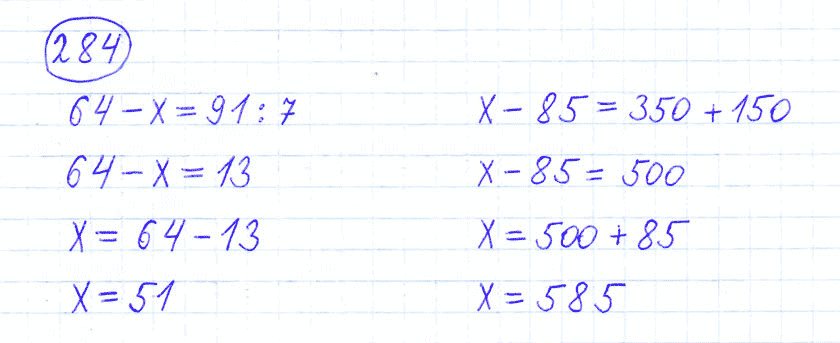 284
64 - x = 91 : 7
64 - x = 13
x = 64 - 13
x = 51
x - 85 = 350 + 150
x - 85 = 500
x = 500 + 85
x = 585